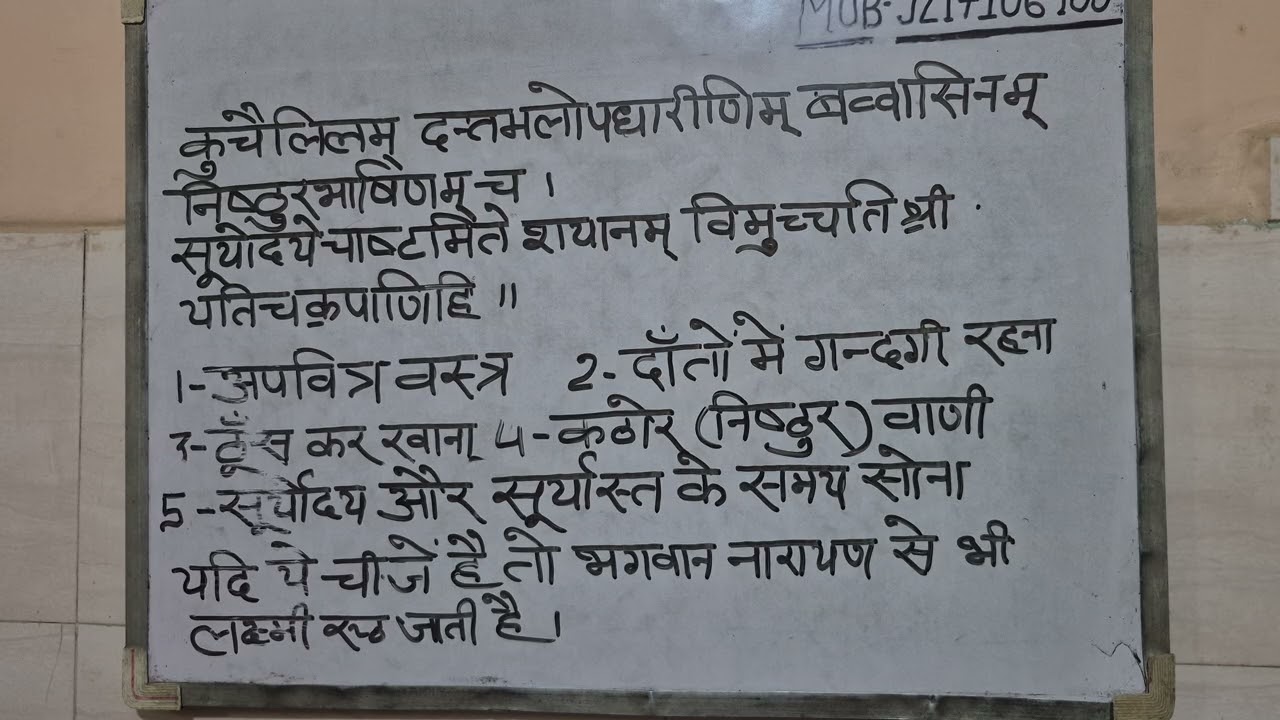 कुचैलिलम् दन्तमलोपधारीणिम् बव्वासिनम्
निष्ठुरभाषिणम् च ।
सूर्योदये चाष्टमिते शयानम् विमुच्चति श्री
यतिचक्रपाणिहि ॥
1-अपवित्र वस्त्र 2-दाँतों में गन्दगी रहना
3-ठूँस कर खाना 4-कठोर (निष्ठुर) वाणी
5-सूर्योदय और सूर्यास्त के समय सोना
यदि ये चीजें है तो भगवान नारायण से भी
लक्ष्मी रूठ जाती है ।